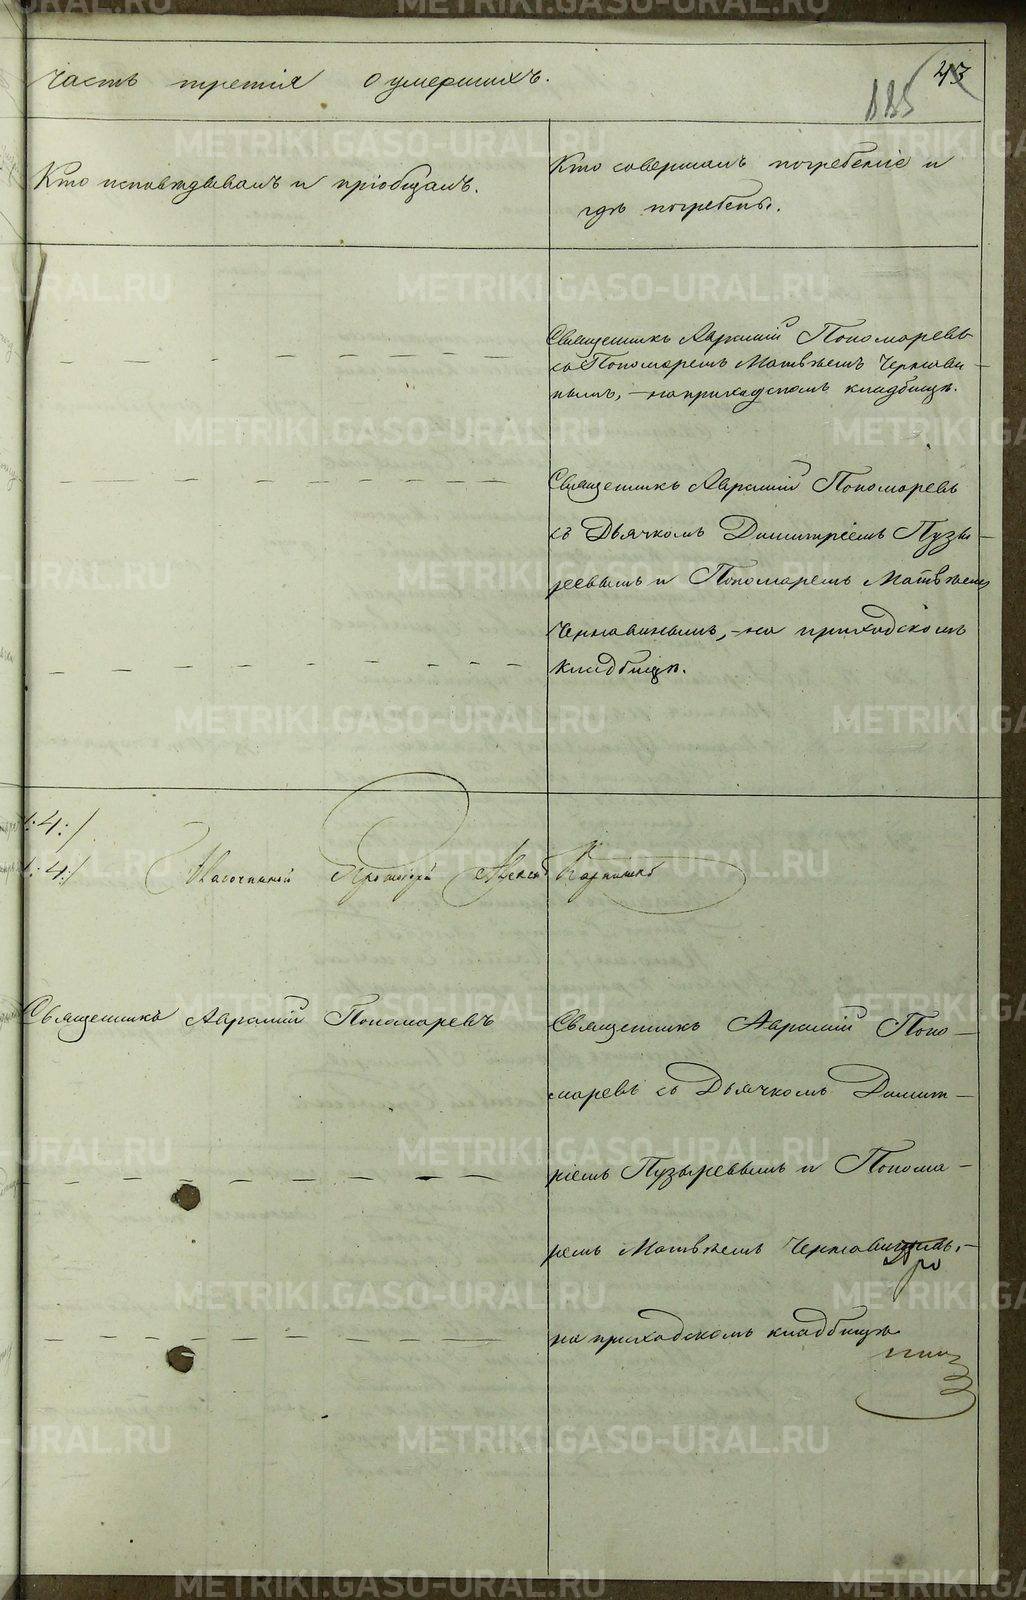 Часть третія о умершихъ.
43
115
Кто исповѣдывалъ и пріобщалъ.
Кто совершалъ погребеніе и
гдѣ погребены.
Священникъ Аврамій Пономаревъ
съ Пономаремъ Матвѣемъ Чернави-
нымъ, – на приходскомъ кладбищѣ.
Священникъ Аврамій Пономаревъ
съ Дьячкомъ Димитріемъ Пузы-
ревымъ и Пономаремъ Матвѣемъ
Чернавинымъ, – на приходскомъ
кладбищѣ.
/:4:/
/:4:/
Благочинный Протоіерей
Священникъ Аврамій Пономаревъ
Священникъ Аврамій Поно-
маревъ съ Дьячкомъ Димит-
ріемъ Пузыревымъ и Понома-
ремъ Матвѣемъ Чернавинымъ, –
на приходскомъ кладбищѣ
METRIKI.GASO-URAL.RU